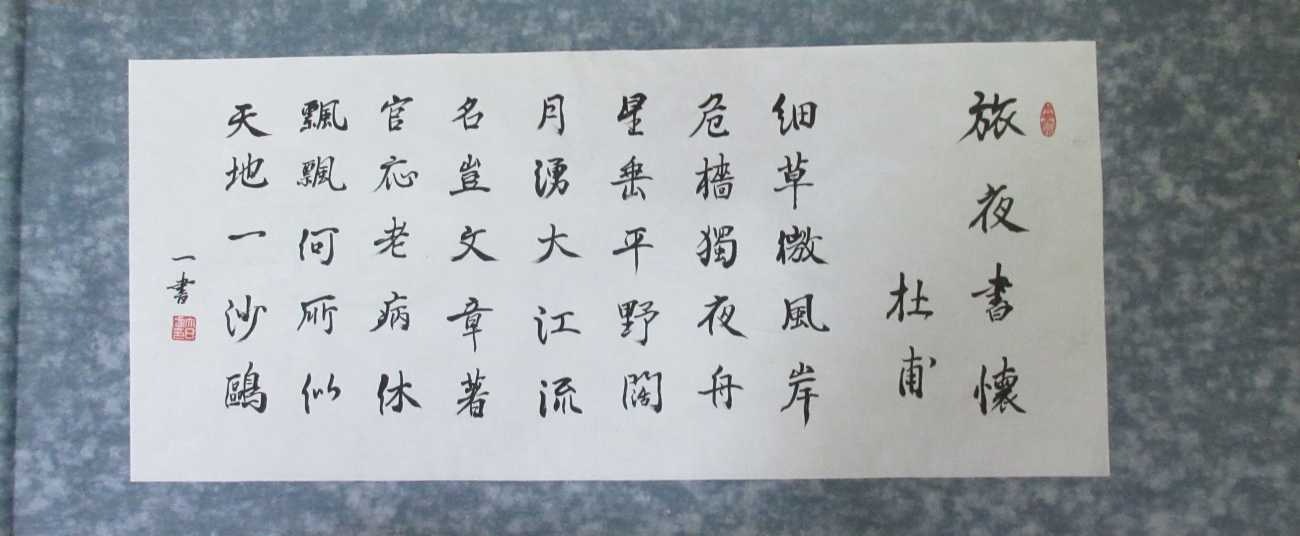 旅夜書懷
杜甫
細草微風岸
危檣獨夜舟
星垂平野闊
月湧大江流
名豈文章著
官応老病休
飄飄何所似
天地一沙鷗
一書